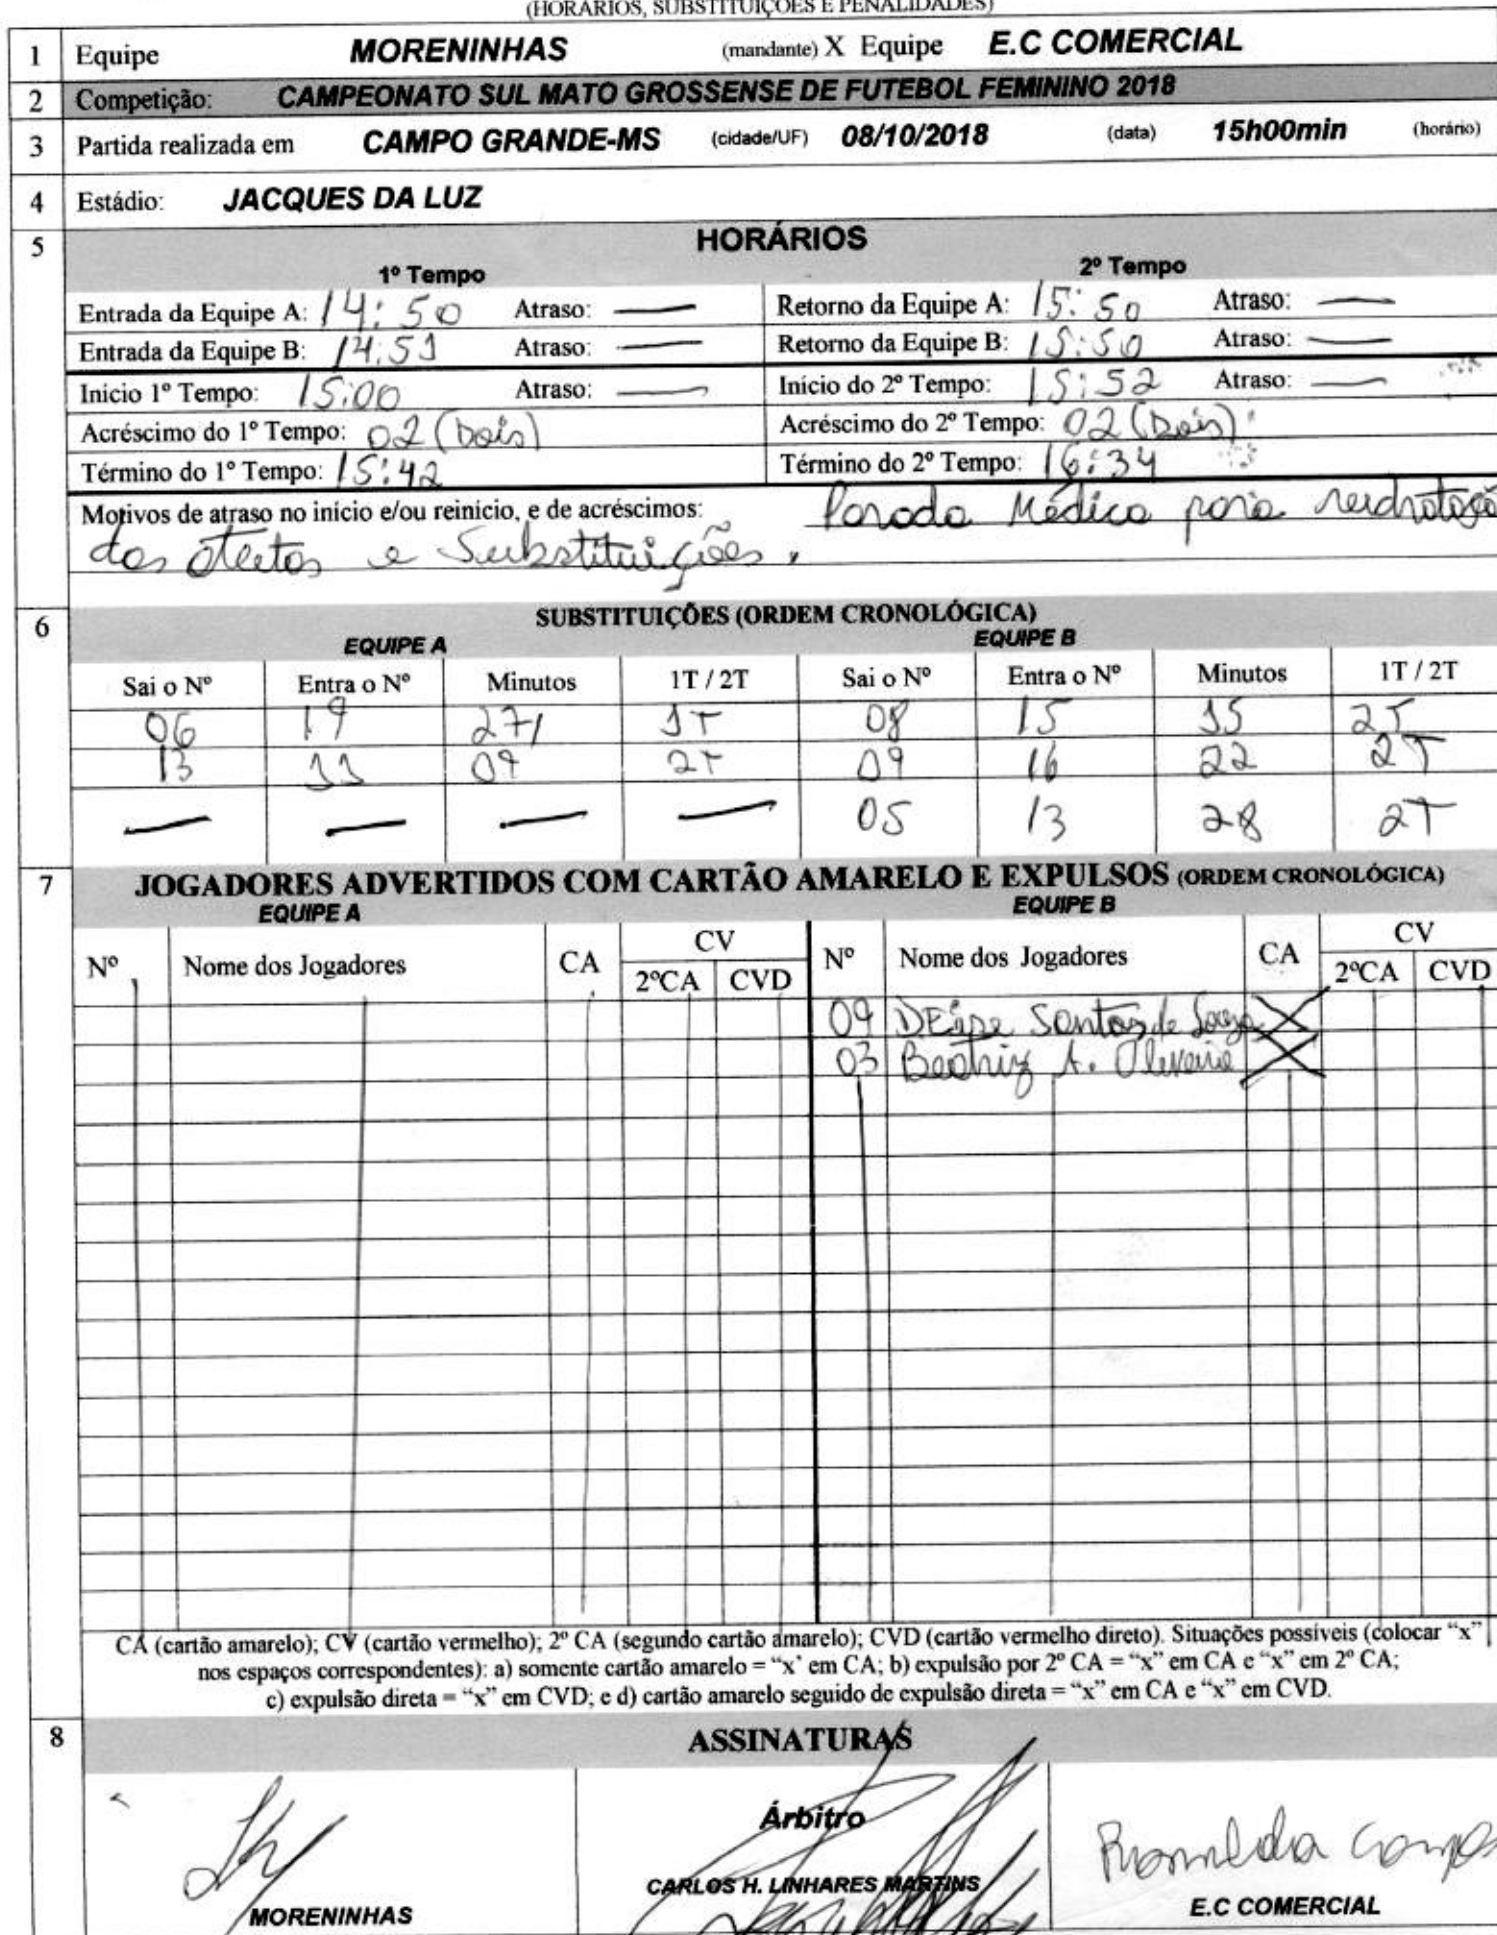 (HORÁRIOS, SUBSTITUIÇÕES E PENALIDADES)
1 Equipe MORENINHAS (mandante) X Equipe E.C COMERCIAL
2 Competição: CAMPEONATO SUL MATO GROSSENSE DE FUTEBOL FEMININO 2018
3 Partida realizada em CAMPO GRANDE-MS (cidade/UF) 08/10/2018 (data) 15h00min (horário)
4 Estádio: JACQUES DA LUZ
5 HORÁRIOS
1º Tempo 2º Tempo
Entrada da Equipe A: 14:50 Atraso: — Retorno da Equipe A: 15:50 Atraso: —
Entrada da Equipe B: 14:51 Atraso: — Retorno da Equipe B: 15:50 Atraso: —
Início 1º Tempo: 15:00 Atraso: — Início do 2º Tempo: 15:52 Atraso: —
Acréscimo do 1º Tempo: 02 (Dois) Acréscimo do 2º Tempo: 02 (Dois)
Término do 1º Tempo: 15:42 Término do 2º Tempo: 16:34
Motivos de atraso no início e/ou reinicio, e de acréscimos: Parada Médica para reidratação
das atletas e Substituições.
6 SUBSTITUIÇÕES (ORDEM CRONOLÓGICA)
EQUIPE A EQUIPE B
Sai o Nº Entra o Nº Minutos 1T / 2T Sai o Nº Entra o Nº Minutos 1T / 2T
06 19 27 1T 08 15 15 2T
13 11 09 2T 09 16 22 2T
— — — — 05 13 28 2T
7 JOGADORES ADVERTIDOS COM CARTÃO AMARELO E EXPULSOS (ORDEM CRONOLÓGICA)
EQUIPE A EQUIPE B
Nº Nome dos Jogadores CA CV Nº Nome dos Jogadores CA CV
2ºCA CVD 2ºCA CVD
09 Santos de Souza X
03 Beatriz A. Oliveira X
CA (cartão amarelo); CV (cartão vermelho); 2º CA (segundo cartão amarelo); CVD (cartão vermelho direto). Situações possíveis (colocar “x”
nos espaços correspondentes): a) somente cartão amarelo = “x’ em CA; b) expulsão por 2º CA = “x” em CA e “x” em 2º CA;
c) expulsão direta = “x” em CVD; e d) cartão amarelo seguido de expulsão direta = “x” em CA e “x” em CVD.
8 ASSINATURAS
Árbitro
CARLOS H. LINHARES MARTINS
MORENINHAS E.C COMERCIAL